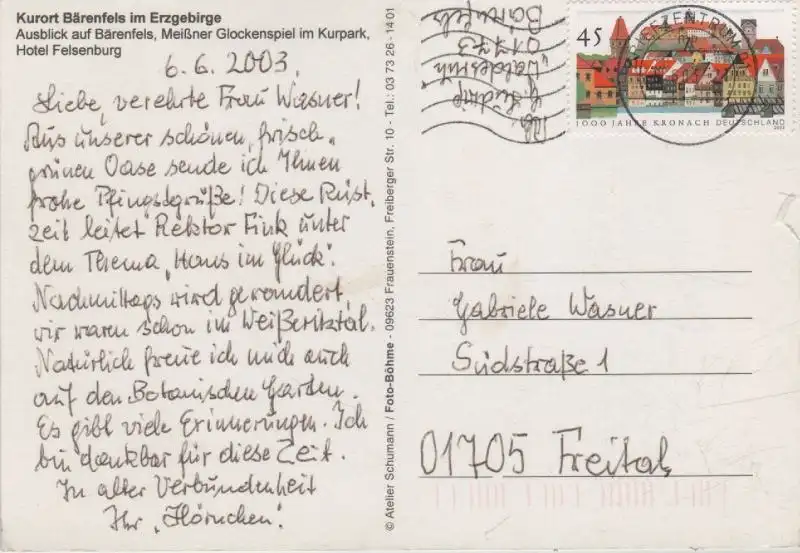 Kurort Bärenfels im Erzgebirge
Ausblick auf Bärenfels, Meißner Glockenspiel im Kurpark,
Hotel Felsenburg
6.6.2003.
Liebe, verehrte Frau Wasner!
Aus unserer schönen, frisch-
grünen Oase sende ich Ihnen
frohe Pfingstgrüße! Diese Rüst-
zeit leitet Rektor Fink unter
dem Thema „Hans im Glück".
Nachmittags wird gewandert,
wir waren schon im Weißeritztal.
Natürlich freue ich mich auch
auf den Botanischen Garten.
Es gibt viele Erinnerungen. Ich
bin dankbar für diese Zeit.
In alter Verbundenheit
Ihr „Hörnchen".
© Atelier Schumann / Foto-Böhme - 09623 Frauenstein, Freiberger Str. 10 - Tel.: 03 73 26 - 14 01
"Waldesruh"
01773
Bärenfels
45
1000 JAHRE KRONACH DEUTSCHLAND
2003
BRIEFZENTRUM
Frau
Gabriele Wasner
Südstraße 1
01705 Freital